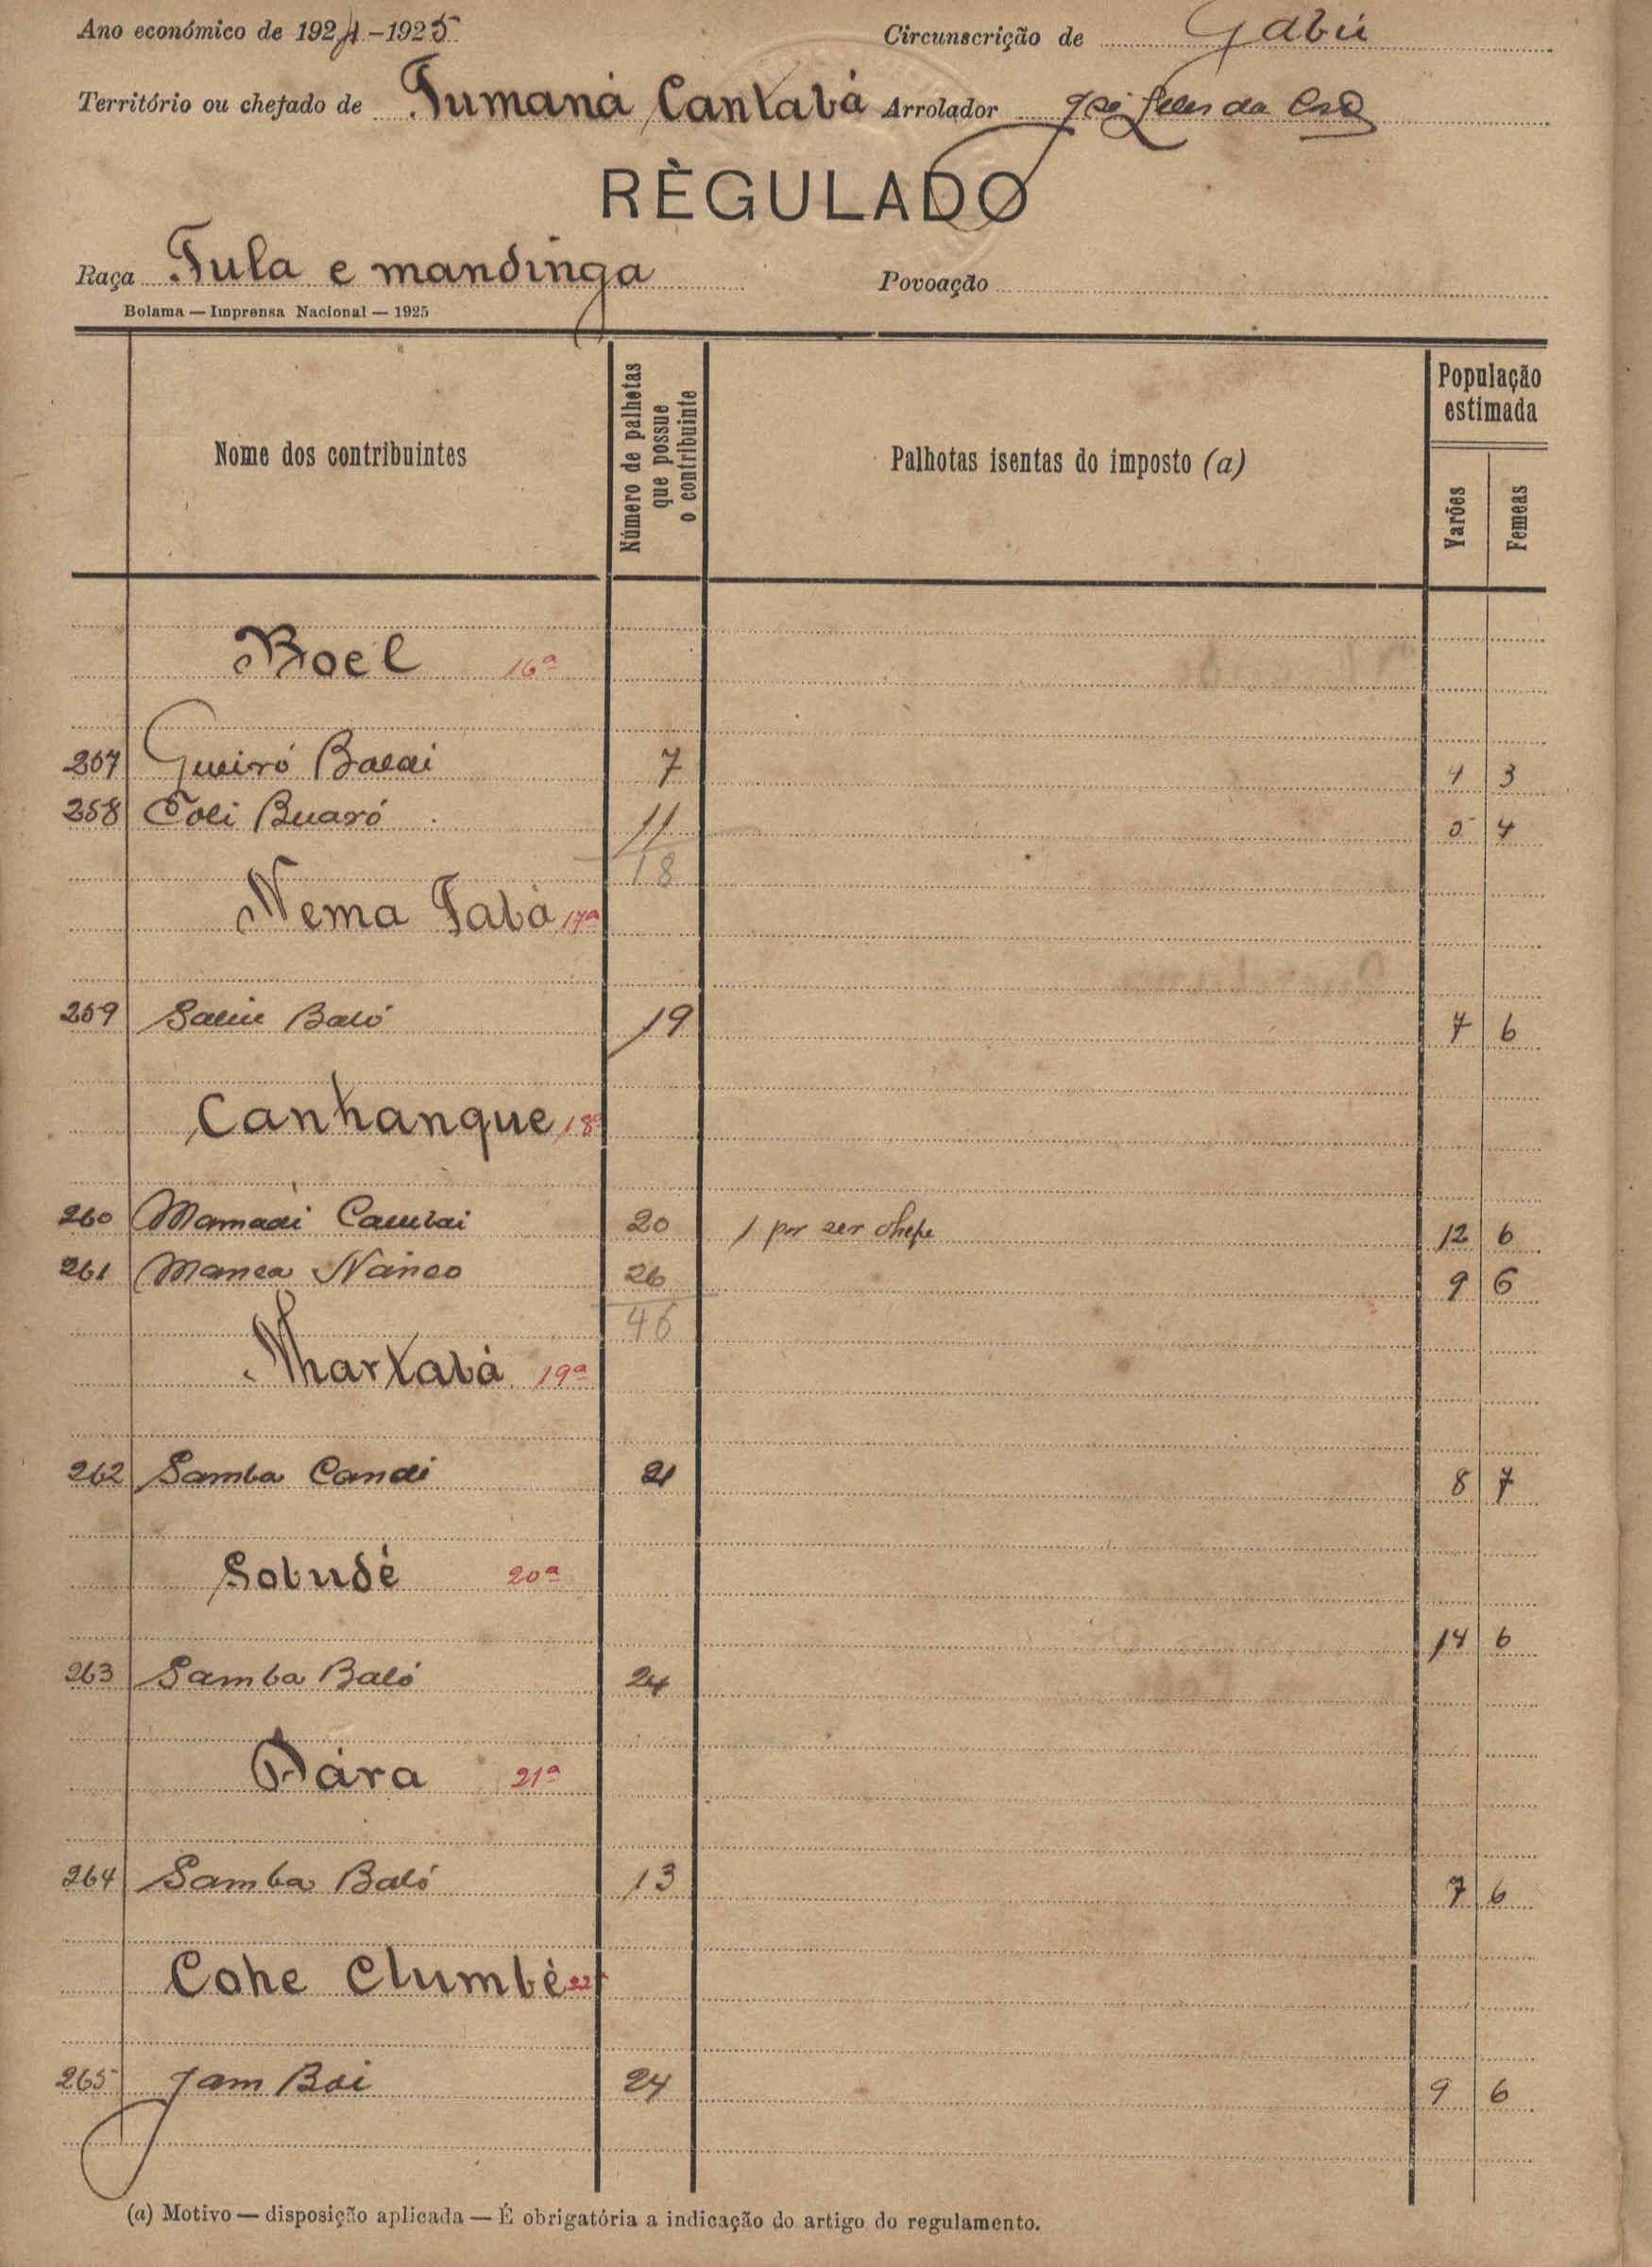 Ano económico de 1924-1925 Circunscrição de Gabú
Território ou chefado de Tumaná Cantabá Arrolador José da
RÈGULADO
Raça Fula e mandinga Povoação
Bolama — Imprensa Nacional — 1925
Nome dos contribuintes
Número de palhotas que possue o contribuinte
Palhotas isentas do imposto (a)
População estimada
Varões
Femeas
Boel 16ª
257 Gueiró Baldi 7 4 3
258 Coli Buaró 11 5 4
18
Nema Tabá 17ª
259 Saliu Baló 19 7 6
Canhanque 18ª
260 Mamadi Cambai 20 1 por ser chefe 12 6
261 Manca Nanco 26 9 6
46
Nhartabá 19ª
262 Samba Candi 21 8 7
Sobudé 20ª
14 6
263 Samba Baló 24
Dára 21ª
264 Samba Baló 13 7 6
Cohe Clumbé 22ª
265 Jam Boi 24 9 6
(a) Motivo — disposição aplicada — É obrigatória a indicação do artigo do regulamento.